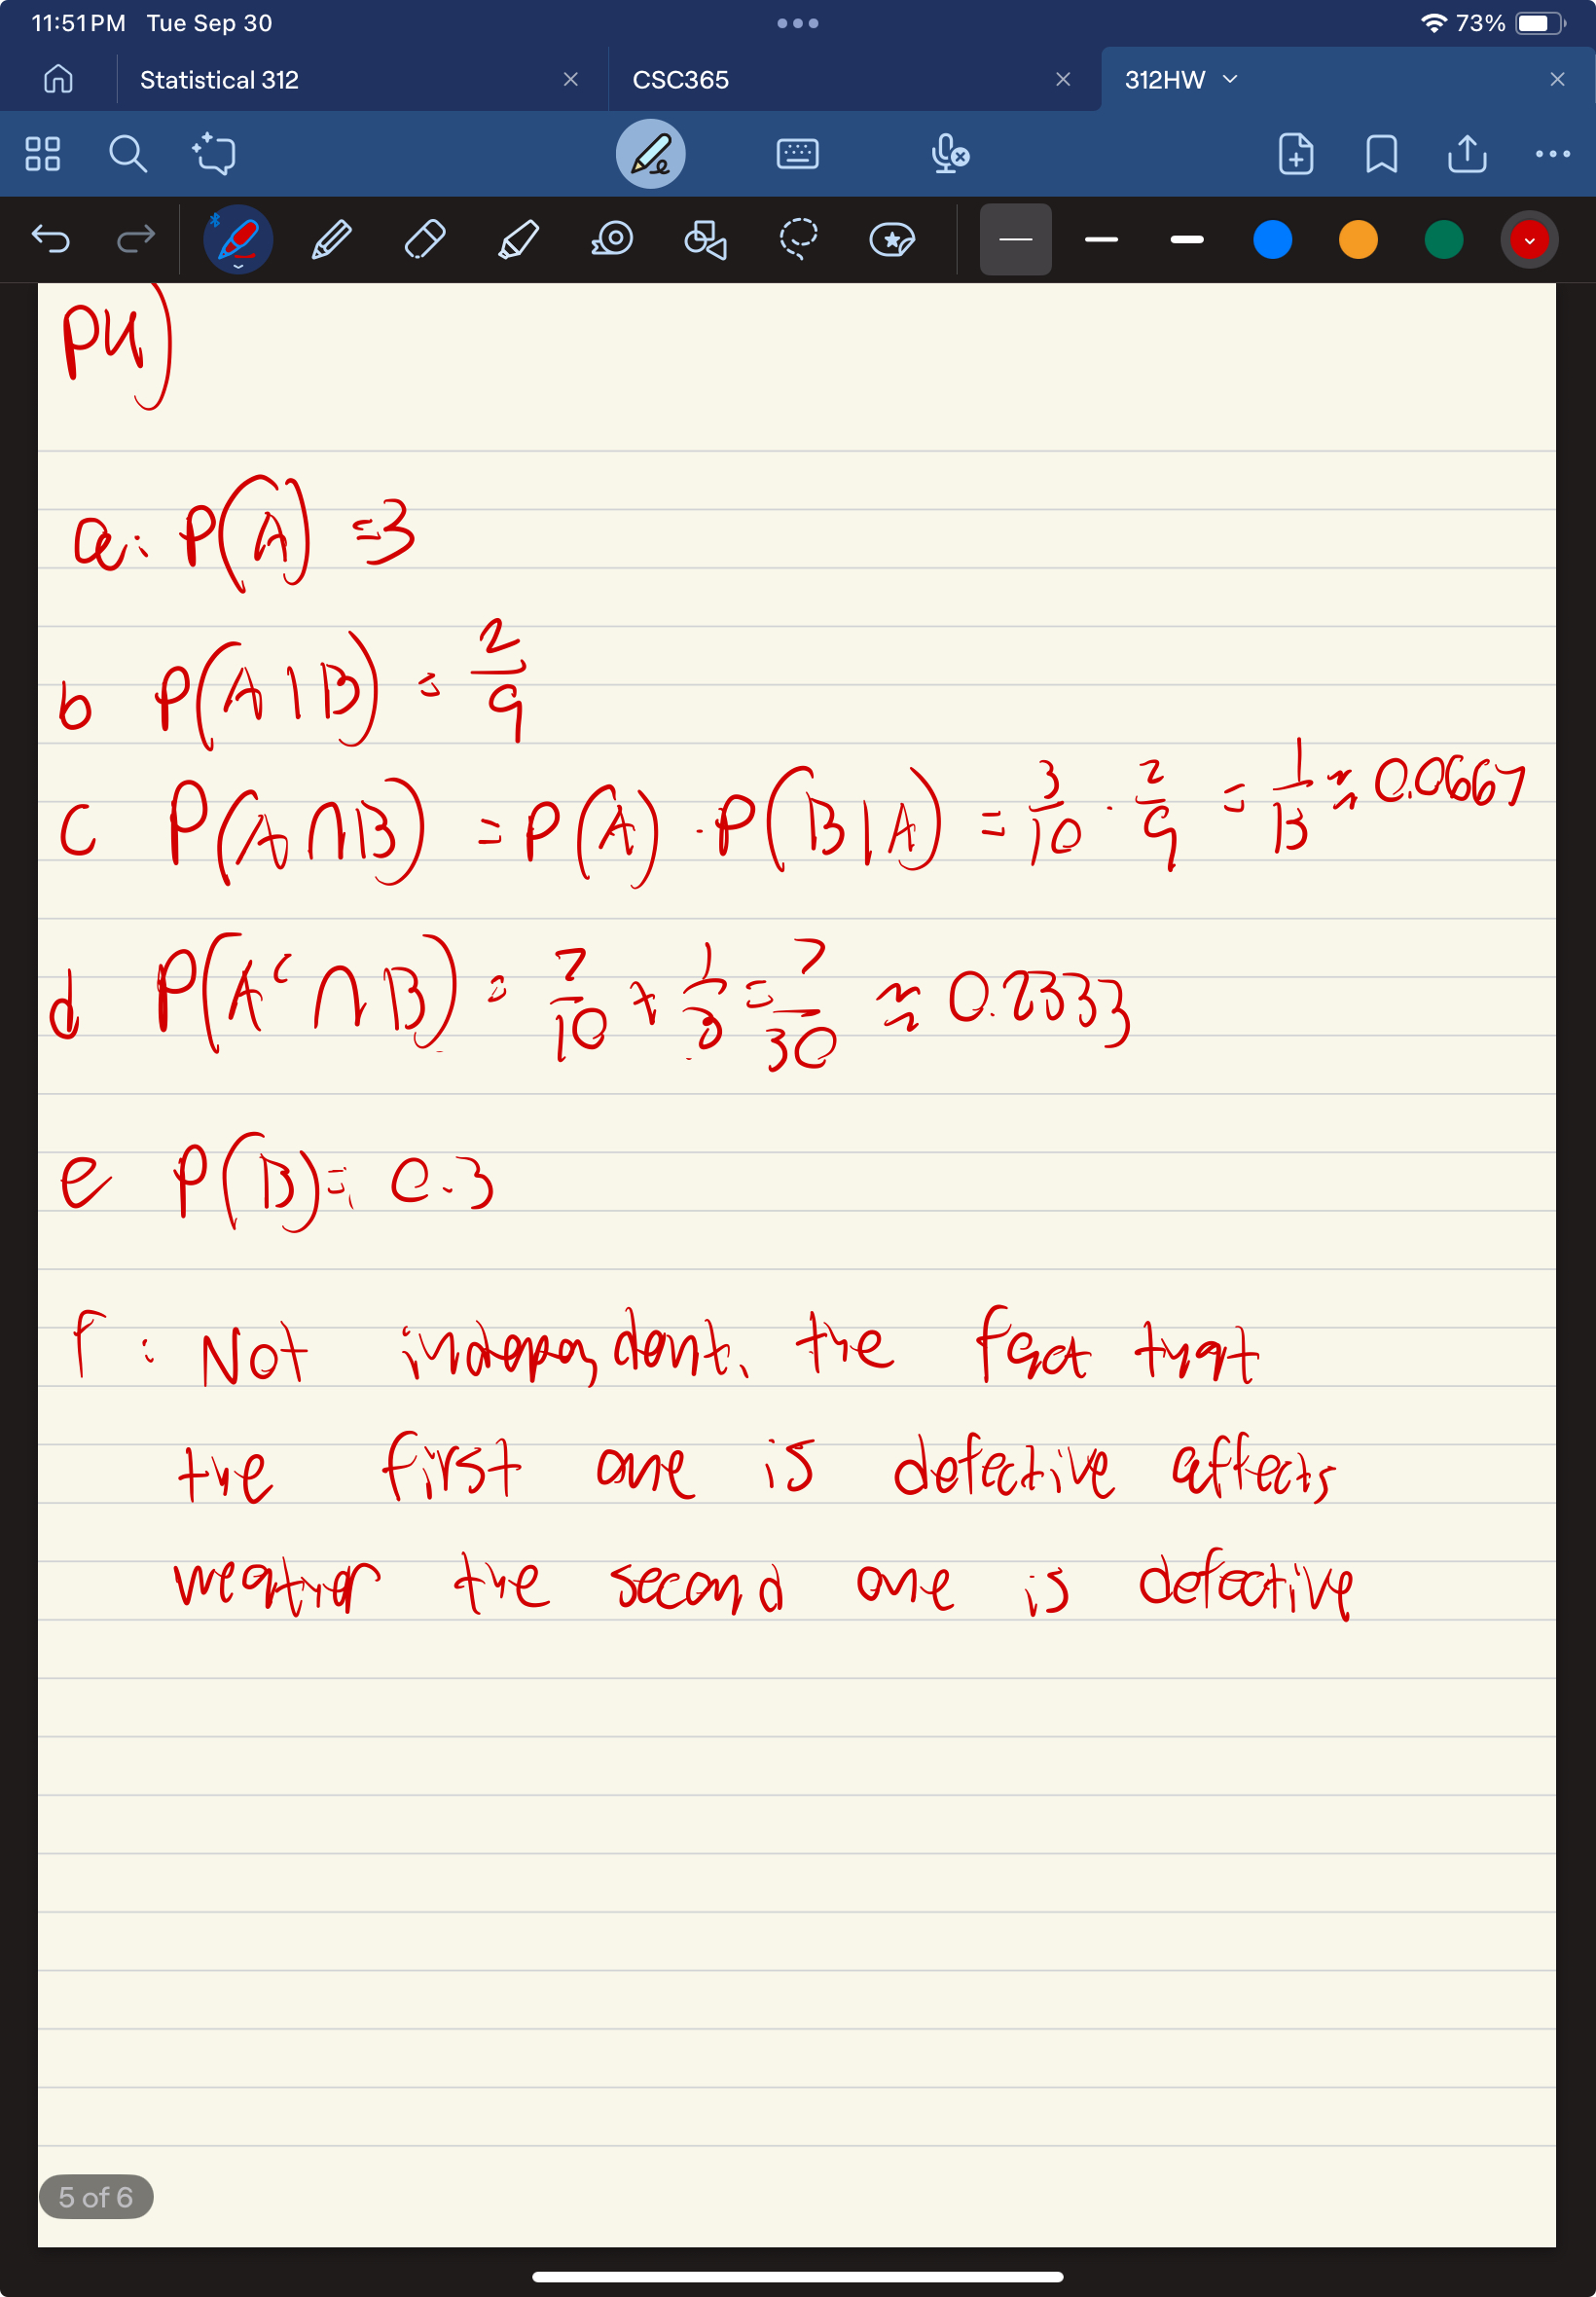 11:51 PM Tue Sep 30
73%
Statistical 312
CSC365
312HW
P4)
a: P(A) =3
b P(A|B) = 2/9
c P(A∩B) = P(A) · P(B|A) = 3/10 · 2/9 = 1/15 ≈ 0.0667
d P(Aᶜ∩B) = 7/10 * 1/3 = 7/30 ≈ 0.2333
e P(B) = 0.3
f : Not independent. the fact that
the first one is defective affects
weather the second one is defective
5 of 6